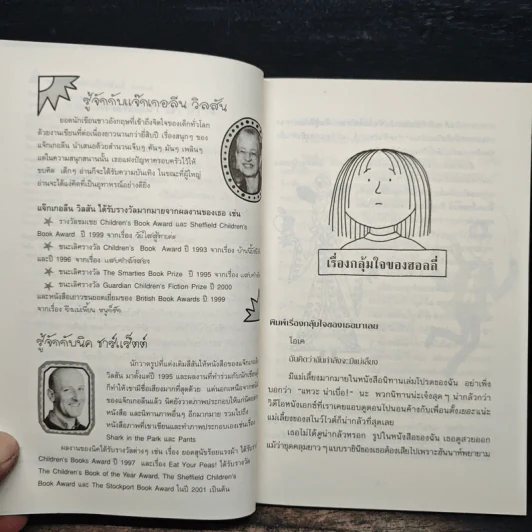 รู้จักกับแจ๊กเกอลีน วิลสัน
ยอดนักเขียนชาวอังกฤษที่เข้าถึงจิตใจของเด็กทั่วโลก
ด้วยงานเขียนที่ต่อเนื่องยาวนานกว่ายี่สิบปี เรื่องสนุกๆ ของ
แจ็กเกอลีน นำเสนอด้วยสำนวนเจ็บๆ คันๆ มันๆ เพลินๆ
แต่ในความสนุกสนานนั้น เธอแฝงปัญหาครอบครัวไว้ให้
ขบคิด เด็กๆ อ่านก็จะได้รับความบันเทิง ในขณะที่ผู้ใหญ่
อ่านจะได้แง่คิดที่เป็นอุทาหรณ์อย่างดียิ่ง
แจ๊กเกอลีน วิลสัน ได้รับรางวัลมากมายจากผลงานของเธอ เช่น
รางวัลชมเชย Children's Book Award และ Sheffield Children's
Book Award ปี 1999 จากเรื่อง
ชนะเลิศรางวัล Children's Book Award ปี 1993 จากเรื่อง
และปี 1996 จากเรื่อง
ชนะเลิศรางวัล The Smarties Book Prize ปี 1995 จากเรื่อง
ชนะเลิศรางวัล Guardian Children's Fiction Prize ปี 2000
และหนังสือเยาวชนยอดเยี่ยมของ British Book Awards ปี 1999
จากเรื่อง
รู้จักกับนิค ชาร์แร็ตต์
นักวาดรูปที่แต่งเติมสีสันให้หนังสือของแจ็กเกอลีน
วิลสัน มาตั้งแต่ปี 1995 และผลงานที่ทำร่วมกับนักเขียน
ก็ทำให้เขามีชื่อเสียงมากที่สุดด้วย แต่นอกเหนือจาก
ของแจ็กเกอลีนแล้ว นิคยังวาดภาพประกอบให้แก่นิตยสาร
หนังสือ และนิทานภาพอื่นๆ อีกมากมาย รวมไปถึง
หนังสือภาพที่เขาเขียนและทำภาพประกอบเองเช่นเรื่อง
Shark in the Park และ Pants
ผลงานของนิคได้รับรางวัลต่างๆ เช่น เรื่อง ยอดสุนัขร้อยแรงม้า ได้รับ
Children's Books Award ปี 1997 และเรื่อง Eat Your Peas! ได้รับรางวัล
The Children's Book of the Year Award, The Sheffield Children's
Book Award และ The Stockport Book Award ในปี 2001 เป็นต้น
เรื่องกลุ้มใจของฮอลลี่
พิมพ์เรื่องกลุ้มใจของเธอมาเลย
โอเค
ฉันคิดว่าฉันกำลังจะมีแม่เลี้ยง
มีแม่เลี้ยงมากมายในหนังสือนิทานเล่มโปรดของฉัน อย่าเพิ่ง
บอกว่า "แหวะ น่าเบื่อ!" นะ พวกนิทานน่ะเจ๋งสุดๆ น่ากลัวกว่า
วิดีโอหนังเอกซ์ที่เราเคยแอบดูตอนไปนอนค้างกับเพื่อนตั้งเยอะแน่ะ
แม่เลี้ยงของสโนว์ไวต์ก็น่ากลัวที่สุดเลย
เธอไม่ได้ดูน่ากลัวหรอก รูปในหนังสือของฉัน เธอดูสวยออก
แม้ว่าชุดคลุมยาว ๆ แบบราชินีของเธอต้องเสียไปเพราะฮันนาห์พยายาม